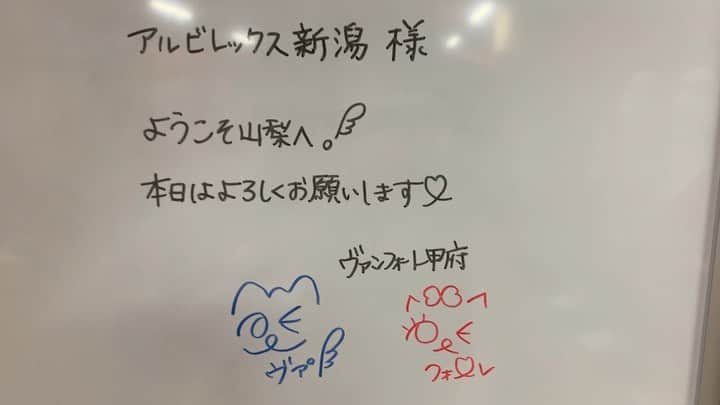 アルビレックス新潟 様
ようこそ山梨へ。
本日はよろしくお願いします♡
ヴァンフォーレ甲府
ヴァ
フォ♡レ